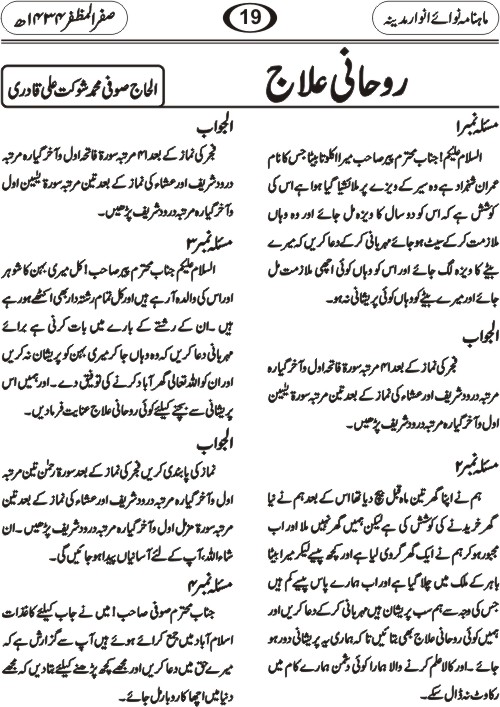 ماہنامہ نوائے انوار مدینہ
19
صفر المظفر ۱۴۳۴ھ
روحانی علاج
الحاج صوفی محمد شوکت علی قادری
مسئلہ نمبر ۱
السلام علیکم! جناب محترم پیر صاحب میرا اکلوتا بیٹا جس کا نام
عمران شہزاد ہے وہ سیر کے ویزے پر ملائشیا گیا ہوا ہے اس کی
کوشش ہے کہ اس کو دو سال کا ویزہ مل جائے اور وہ وہاں
ملازمت کر کے سیٹ ہو جائے مہربانی کر کے دعا کریں کہ میرے
بیٹے کا ویزہ لگ جائے اور اس کو وہاں کوئی اچھی ملازمت مل
جائے اور میرے بیٹے کو وہاں کوئی پریشانی نہ ہو۔
الجواب
فجر کی نماز کے بعد ۴۱ مرتبہ سورۃ فاتحہ اول و آخر گیارہ
مرتبہ درود شریف اور عشاء کی نماز کے بعد تین مرتبہ سورۃ یٰسین
اول و آخر گیارہ مرتبہ درود شریف پڑھیں۔
مسئلہ نمبر ۲
ہم نے اپنا گھر تین ماہ قبل بیچ دیا تھا اس کے بعد ہم نے نیا
گھر خریدنے کی کوشش کی ہے لیکن ہمیں گھر نہیں ملا اور اب
مجبور ہو کر ہم نے ایک گھر گروی لیا ہے اور کچھ پیسے لیکر میرا بیٹا
باہر کے ملک میں چلا گیا ہے اور اب ہمارے پاس پیسے کم ہیں
جس کی وجہ سے ہم سب پریشان ہیں مہربانی کر کے دعا کریں اور
ہمیں کوئی روحانی علاج بھی بتائیں تا کہ ہماری یہ پریشانی دور ہو
جائے۔ اور کالا علم کرنے والا ہمارا کوئی دشمن ہمارے کام میں
رکاوٹ نہ ڈال سکے۔
الجواب
فجر کی نماز کے بعد ۴۱ مرتبہ سورۃ فاتحہ اول و آخر گیارہ مرتبہ
درود شریف اور عشاء کی نماز کے بعد تین مرتبہ سورۃ یٰسین اول
و آخر گیارہ مرتبہ درود شریف پڑھیں۔
مسئلہ نمبر ۳
السلام علیکم جناب محترم پیر صاحب! کل میری بہن کا شوہر
اور اس کی والدہ آ رہے ہیں اور کل تمام رشتہ دار بھی اکٹھے ہو رہے
ہیں۔ ان کے رشتے کے بارے میں بات کرنی ہے برائے
مہربانی دعا کریں کہ وہ وہاں جا کر میری بہن کو پریشان نہ کریں
اور ان کو اللہ تعالیٰ گھر آباد کرنے کی توفیق دے۔ اور ہمیں اس
پریشانی سے بچنے کیلئے کوئی روحانی علاج عنایت فرما دیں۔
الجواب
نماز کی پابندی کریں فجر کی نماز کے بعد سورۃ رحمٰن تین مرتبہ
اول و آخر گیارہ مرتبہ درود شریف اور عشاء کی نماز کے بعد تین
مرتبہ سورۃ مزمل اول و آخر گیارہ مرتبہ درود شریف پڑھیں۔ ان
شاء اللہ آپ کے لئے آسانیاں پیدا ہو جائیں گی۔
مسئلہ نمبر ۴
جناب محترم صوفی صاحب! میں نے جاب کیلئے کاغذات
اسلام آباد میں جمع کرائے ہوئے ہیں آپ سے گزارش ہے کہ
میرے حق میں دعا کریں اور مجھے کچھ پڑھنے کیلئے بتا دیں کہ مجھے
دنیا میں اچھا کاروبار مل جائے۔